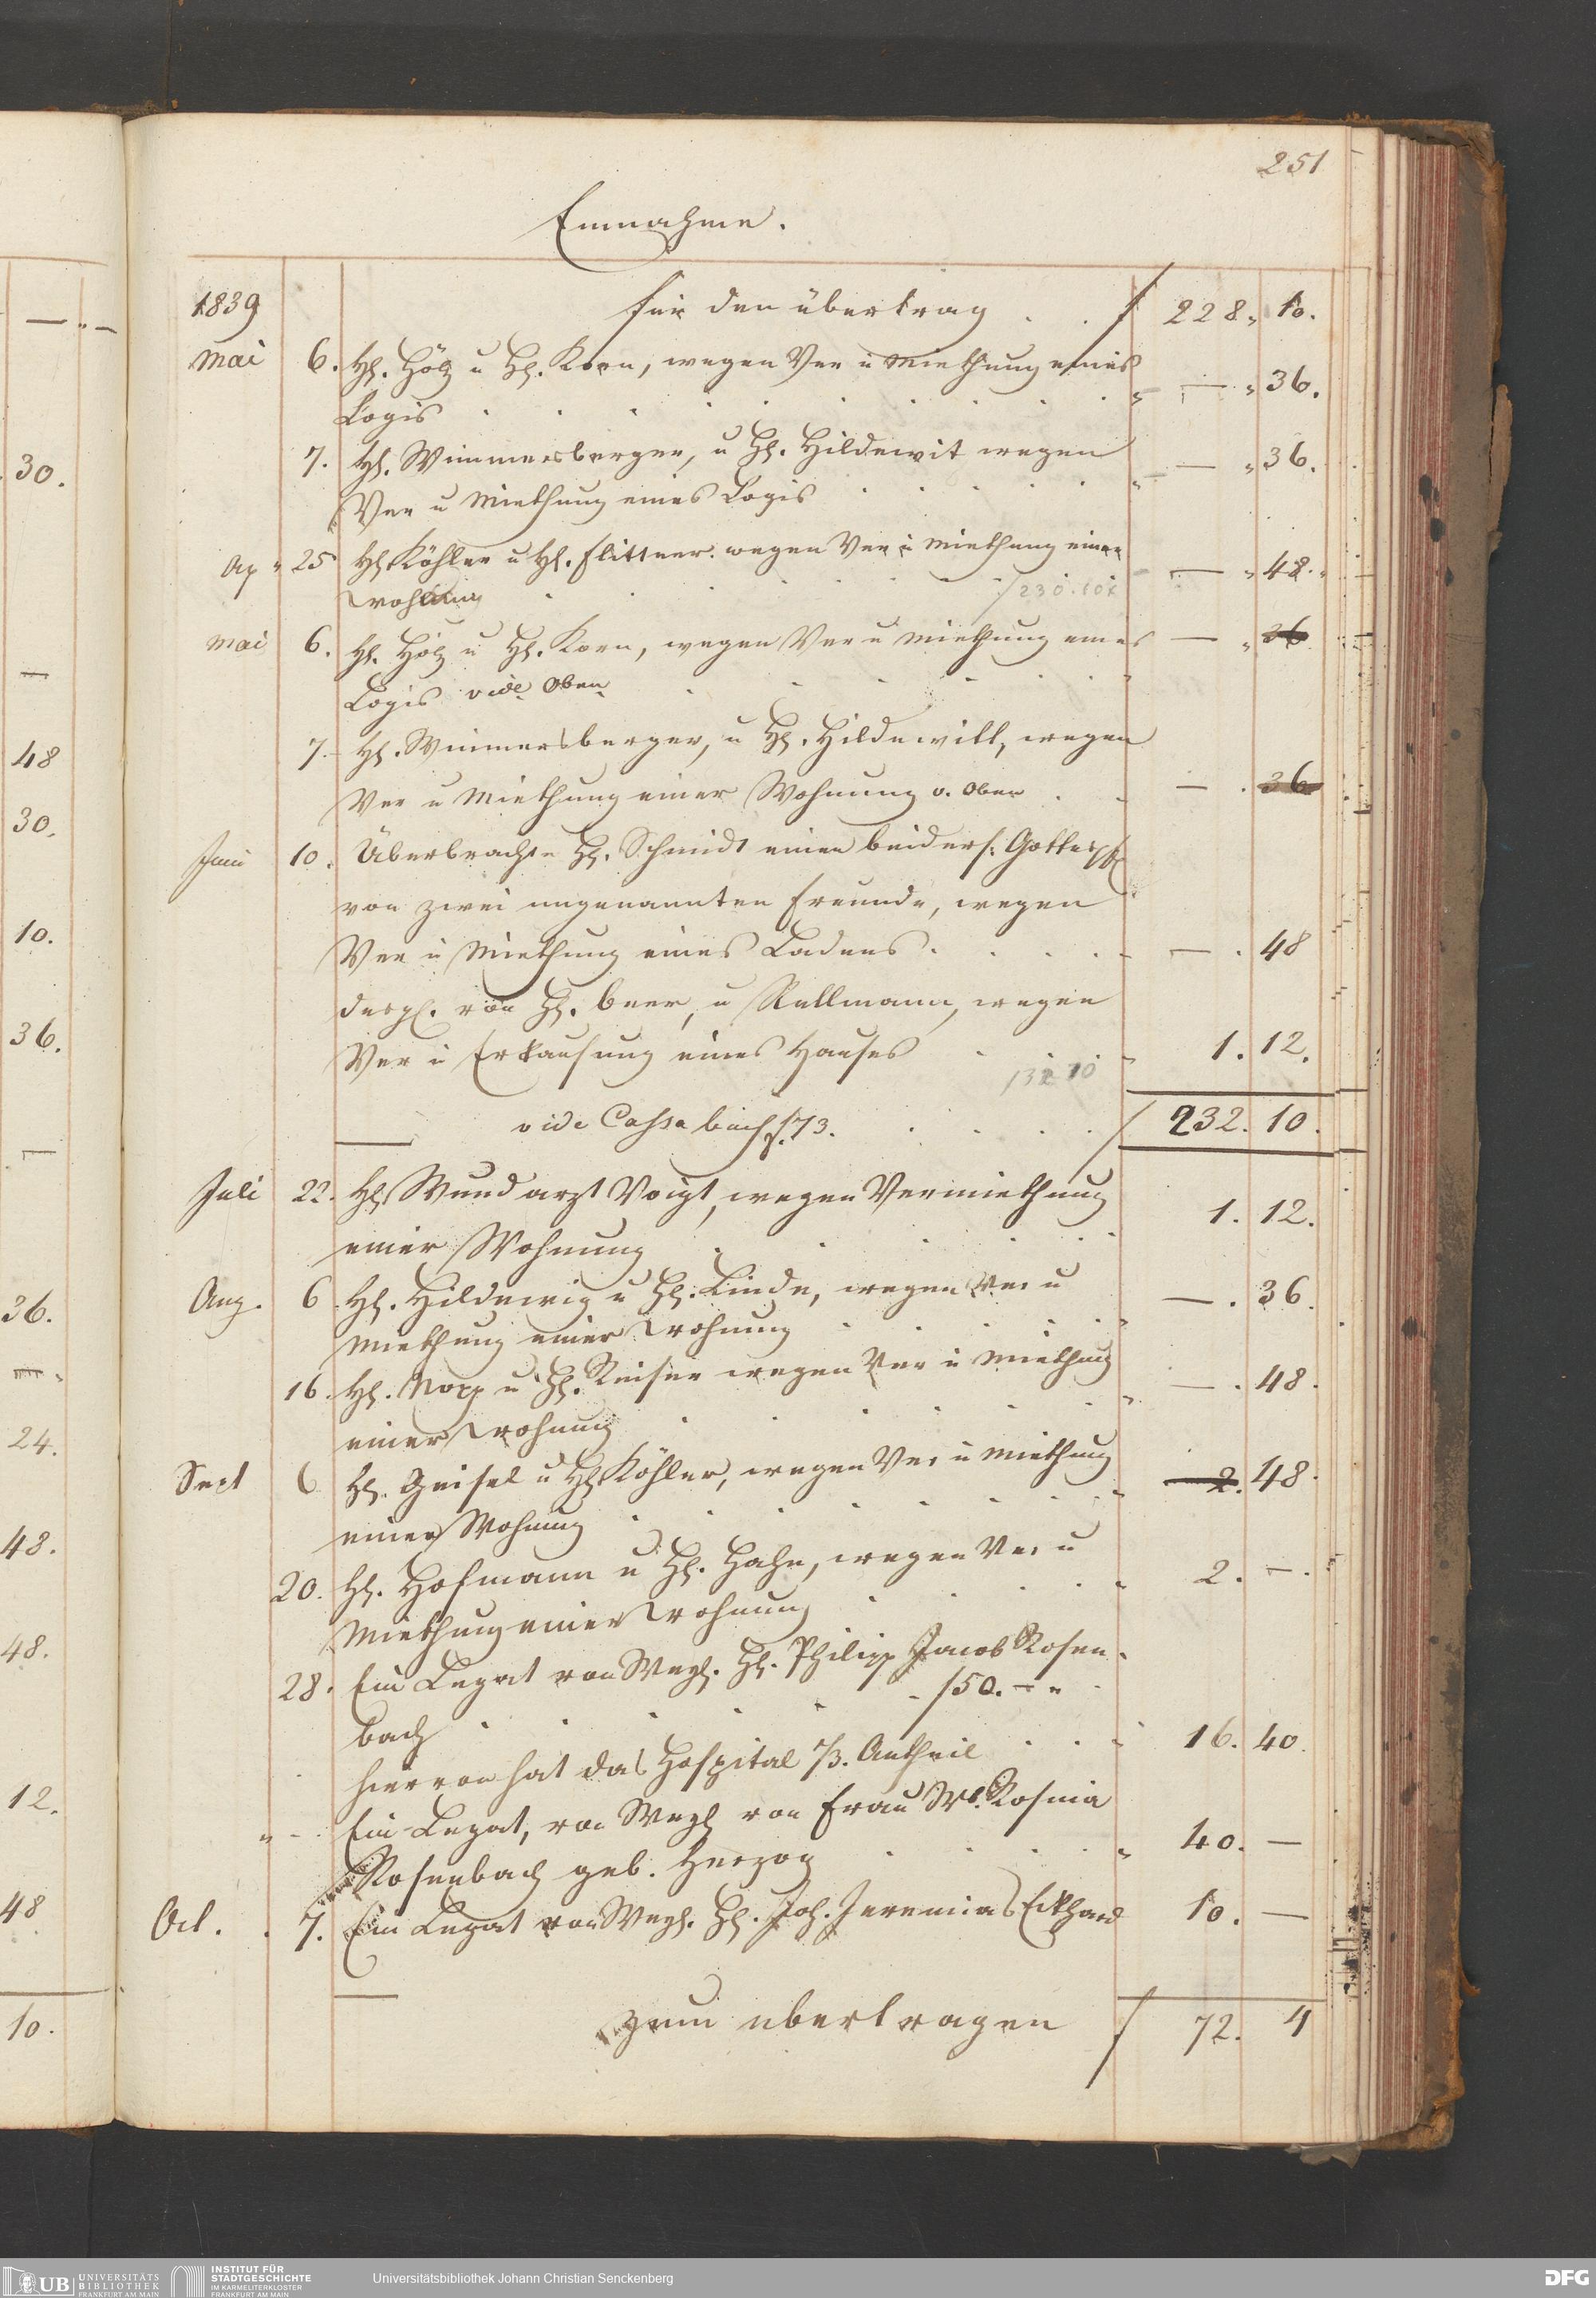 251
Einnahme.
1839 für den übertrag . . f 228. 10.
Mai 6. Hl. Hölz u Hl. Korn, wegen Ver u Miethung eines
Logis . . . . . . . . . . " — " 36.
7. Hl. Wimmersberger, u Hl. Hildewit wegen
Ver u Miethung eines Logis . . . . . " — " 36.
Ap " 25 Hl Köhler u Hl. Flittner. wegen Ver u Miethung einer
Wohnung . . . . . . . f 230. 10x — " 48.
Mai 6. Hl. Hölz u Hl. Korn, wegen Ver u Miethung eines — " 36
Logis vide Oben . . . . . "
7. Hl. Wimmersberger, u Hl. Hildewitt, wegen
Ver u Miethung einer Wohnung v. Oben . . — . 36
Juni 10. Überbrachte Hl. Schmidt einen beiders: Gottespf
von zwei ungenannten Freunde, wegen
Ver u Miethung eines Ladens . . . . . — . 48
desgl. von Hl. Beer, u Rullmann, wegen
Ver u Erkaufung eines Hauses . . . " 1. 12.
132 10
vide Cassa buch f. 73. . . . . f 232. 10.
Juli 22. Hl Wundarzt Voigt, wegen Vermiethung
einer Wohnung . . . . . . 1. 12.
Aug. 6 Hl. Hildewig u Hl. Linde, wegen Ver u
Miethung einer Wohnung . . . . " — . 36.
16. Hl. Nopp u Hl. Reiser wegen Ver u Miethung
einer Wohnung . . . . . . " — . 48.
Sept 6 Hl. Geisel u Hl Köhler, wegen Ver u Miethung
einer Wohnung . . . . . . . " 2. 48.
20. Hl. Hofmann u Hl. Hahn, wegen Ver u
Miethung einer Wohnung . . . . " 2. — .
28. Ein Legat von Wegl. Hl. Philipp Jacob Rosen-
bach . . . . . . f 50. — "
hiervon hat das Hospital 1/3. Antheil . . . 16. 40.
" - Ein Legat, von Wegl von Frau Wb. Rosina
Rosenbach geb. Herzog . . . . " 40. —
Oct. . 7. Ein Legat von Wegl. Hl. Joh. Jeremias Eckhard 10. —
zum übertragen f 72. 4
— "—
30.
—
48
30.
10.
36.
—
36.
24.
48.
48.
12.
48
10.
UB UNIVERSITÄTS
BIBLIOTHEK
FRANKFURT AM MAIN
INSTITUT FÜR
STADTGESCHICHTE
IM KARMELITERKLOSTER
FRANKFURT AM MAIN
Universitätsbibliothek Johann Christian Senckenberg
DFG